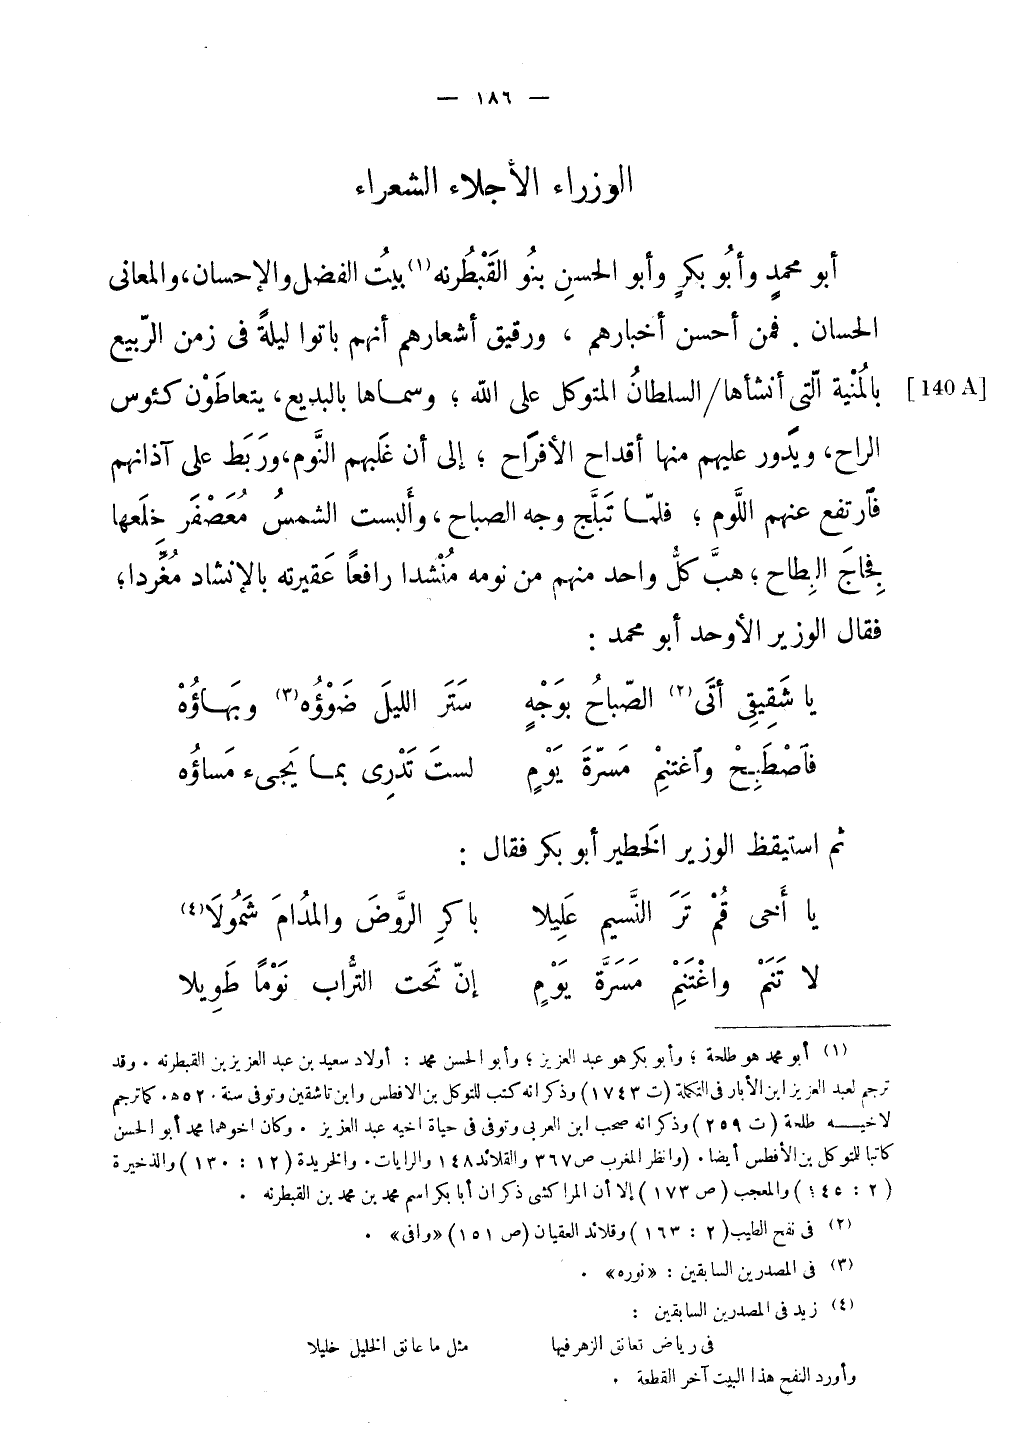 — ١٨٦ —
الوزراء الأجلاء الشعراء
أبو محمدٍ وأبُو بكرٍ وأبو الحسنِ بنُو القَبْطُرنه(١) بيتُ الفضل والإحسان، والمعانى
الحسان . فمن أحسن أخبارهم ، ورقيق أشعارهم أنهم باتوا ليلةً فى زمن الرّبيع
بالُمْنية الّتى أنشأها/السلطانُ المتوكل على الله ؛ وسماها بالبديع، يتعاطَوْن كئوس [140 A]
الراح، ويَدور عليهم منها أقداح الأفرَاح ؛ إلى أن غَلبهم النَّوم، ورَبَط على آذانهم
فٱرتفع عنهم اللَّوم ؛ فلمّا تَبلَّج وجه الصباح، وأَلبست الشمسُ مُعَصْفَر خِلَعها
فِجاجَ البِطاح ؛ هبَّ كلُّ واحد منهم من نومه مُنْشدا رافعاً عَقيرته بالإنشاد مُغَّردا؛
فقال الوزير الأوحد أبو محمد :
يا شَقِيقِى أتَى(٢) الصّباحُ بوَجْهٍ سَتَرَ الليلَ ضَوْؤُه(٣) وبَهاؤُهْ
فٱصْطَبِحْ وٱغتنِمْ مَسرّةَ يَوْمٍ لستَ تَدْرِى بما يَجىء مَساؤُه
ثم استيقظ الوزير الخَطير أبو بكر فقال :
يا أَخى قُمْ تَرَ النَّسيم عَلِيلا باكرِ الرَّوضَ والمدُامَ شَمُولَا(٤)
لا تَنَمْ واغْتَنِمْ مَسَرَّة يَوْمٍ إنّ تَحت التُّراب نَوْمًا طَوِيلا
(١) أبو محمد هو طلحة ؛ وأبو بكر هو عبد العزيز ؛ وأبو الحسن محمد : أولاد سعيد بن عبد العزيز بن القبطرنه . وقد
ترجم لعبد العزيز ابن الأبار فى التكملة (ت ١٧٤٣) وذكر انه كتب للتوكل بن الافطس وابن تاشقين وتوفى سنة ٥٢٠ھ. كما ترجم
لاخيـــه طلحة (ت ٢٥٩) وذكر انه صحب ابن العربى وتوفى فى حياة اخيه عبد العزيز . وكان اخوهما محمد أبو الحسن
كاتبا للتوكل بن الأفطس أيضا. (وانظر المغرب ص ٣٦٧ والقلائد ١٤٨ والرايات. والخريدة (١٢ : ١٣٠) والذخيرة
(٢ : ٤٥؛) والمعجب (ص ١٧٣) إلا أن المراكشى ذكر ان أبا بكر اسم محمد بن محمد بن القبطرنه .
(٢) فى نفح الطيب (٢ : ١٦٣) وقلائد العقيان (ص ١٥١) «وافى» .
(٣) فى المصدرين السابقين : «نوره» .
(٤) زيد فى المصدرين السابقين :
فى رياض تعانق الزهر فيها مثل ما عانق الخليل خليلا
وأورد النفح هذا البيت آخر القطعة .